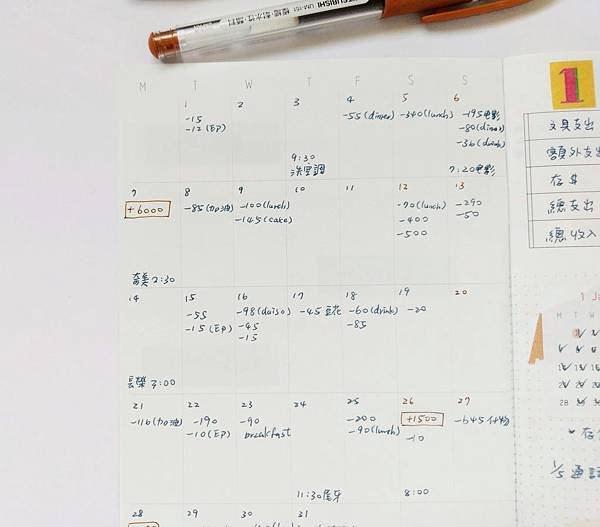 MITSUBISHI UM-151 極細・耐水性・顔料
M T W T F S S
1 2 3 4 5 6
-15 -55 (dinner) -340 (lunch) -195 電影
-12 (EP) -80 (dinner)
-36 (drink)
9:30
7:20 電影
7 8 9 10 11 12 13
+6000 -85 (加油) -100 (lunch) -70 (lunch) -290
-145 (cake) -400 -50
-500
奇美 2:30
14 15 16 17 18 19 20
-55 -98 (daiso) -45 豆花 -60 (drink) -20
-15 (EP) -45 -85
-15
長榮 3:00
21 22 23 24 25 26 27
-116 (加油) -190 -90 -200 +1500
-10 (EP) breakfast -90 (lunch) -10
11:30 尾牙 8:00
28 29 30 31
1
文具支出
額外支出
存 $
總支出
總收入
1 Ja
M T W
28
1/5